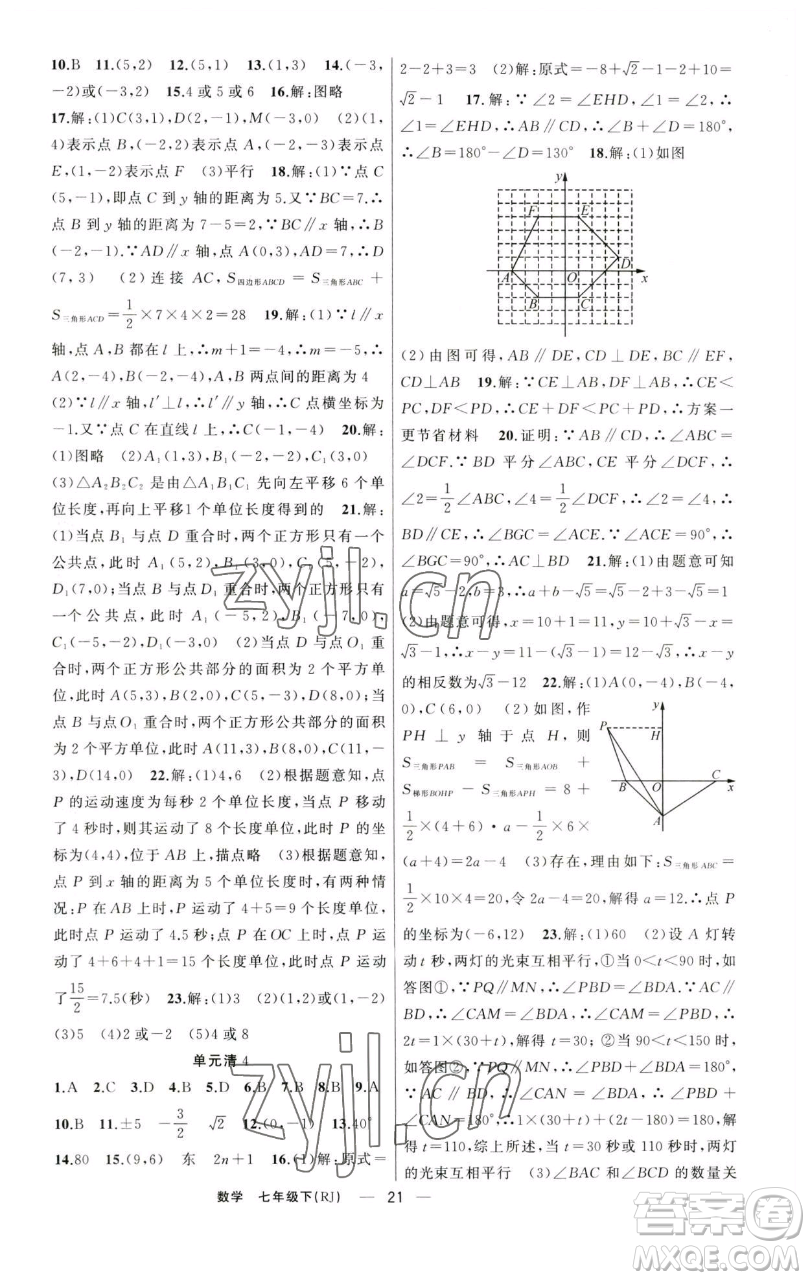 10.B 11.(5,2) 12.(5,1) 13.(1,3) 14.(-3,
-2)或(-3,2) 15.4 或 5 或 6 16.解:图略
17.解:(1)C(3,1),D(2,-1),M(-3,0) (2)(1,
4)表示点 B,(-2,2)表示点 A,(-2,-2)表示点
E,(1,-2)表示点 F (3)平行 18.解:(1)∵点 C
(5,-1),即点 C 到 y 轴的距离为 5.又∵BC=7,∴
点 B 到 y 轴的距离为 7-5=2,∵BC∥x 轴,∴
B(-2,-1).∵AD∥x 轴,点 A(0,3),AD=7,∴D
(7,3) (2)连接 AC,S四边形ABCD=S三角形ABC+
S三角形ACD=1/2×7×4×2=28 19.解:(1)∵l∥x
轴,点 A,B 都在 l 上,∴m+1=-4,∴m=-5,∴
A(2,-4),B(-2,-4),A,B 两点间的距离为 4
(2)∵l∥x 轴,l′⊥l,∴l′∥y 轴,∴C 点横坐标为
-1.又∵点 C 在直线 l 上,∴C(-1,-4) 20.解:
(1)图略 (2)A₁(1,3),B₁(-2,1),C₁(3,0)
(3)△A₂B₂C₂ 是由△A₁B₁C₁ 先向左平移 6 个单
位长度,再向上平移1个单位长度得到的 21.解:
(1)当点 B₁ 与点 D 重合时,两个正方形只有一个
公共点,此时 A₁(5,2),B₁(3,0),C₁(5,-2),
D₁(7,0);当点 A 与点 D₁ 重合时,两个正方形只有
一个公共点,此时 A₁(-5,2),B₁(-7,0),
C₁(-5,-2),D₁(-3,0) (2)当点 D 与点 O₁ 重
合时,两个正方形公共部分的面积为 2 个平方单
位,此时 A(5,3),B(2,0),C(5,-3),D(8,0);当
点 B 与点O₁ 重合时,两个正方形公共部分的面积
为 2 个平方单位,此时 A(11,3),B(8,0),C(11,
-3),D(14,0) 22.解:(1)4,6 (2)根据题意知,点
P 的运动速度为每秒 2 个单位长度,当点 P 移动
了 4 秒时,则其运动了 8 个长度单位,此时 P 的坐
标为(4,4),位于 AB 上,描点略 (3)根据题意知,
点 P 到 x 轴的距离为 5 个单位长度时,有两种情
况:P 在 AB 上时,P 运动了 4+5=9 个长度单位,
此时 P 运动了 4.5 秒;点 P 在 OC 上时,P 运动了
4+6+4+1=15 个长度单位,此时 P 运动
了15/2=7.5(秒) 23.解:(1)3 (2)(1,2)或(1,-2)
(3)5 (4)2 或-2 (5)4 或 8
单元清 4
1.A 2.C 3.D 4.B 5.D 6.B 7.B 8.B 9.A
10.B 11.±5 -3/2 √2 12.(0,-1) 13.40°
14.80 15.(9,6) 东 2n+1 16.(1)解:原式=
2-2+3=3 (2)解:原式=-8+√2-1-2+10=
√2-1 17.解:∵∠2=∠EHD,∠1=∠2,∴
∠1=∠EHD,∴AB∥CD,∴∠B+∠D=180°,
∴∠B=180°-∠D=130° 18.解:(1)如图
y
F E
D
A O x
B C
(2)由图可得,AB∥DE,CD⊥DE,BC∥EF,
CD⊥AB 19.解:∵CE⊥AP,DF⊥AP,∴CE<
PC,DF<PD,∴CE+DF<PC+PD,∴方案一
更节省材料 20.证明:∵AB∥CD,∴∠ABC=
∠DCF.∵BD 平分∠ABC,CE 平分∠DCF,∴
∠2=1/2∠ABC,∠4=1/2∠DCF,∴∠2=∠4,∴
BD∥CE,∴∠BGC=∠ACE.∵∠ACE=90°,∴
∠BGC=90°,∴AC⊥BD 21.解:(1)由题意可知
a=√5-2,b=3,∴a+b-√5=√5-2+3-√5=1
(2)由题意可得,x=10+1=11,y=10+√3-x=
√3-1,∴x-y=11-(√3-1)=12-√3,∴x-y
的相反数为√3-12 22.解:(1)A(0,-4),B(-4,
0),C(6,0) (2)如图,作
PH⊥y 轴于点 H,则
S三角形PAB=S三角形AOB+
S梯形BOHP-S三角形APH=8+
1/2×(4+6)·a-1/2×6×
y
P H
B O C x
A
(a+4)=2a-4 (3)存在,理由如下:S三角形ABC=
1/2×10×4=20,令 2a-4=20,解得 a=12.∴点 P
的坐标为(-6,12) 23.解:(1)60 (2)设 A 灯转
动 t 秒,两灯的光束互相平行,①当 0<t<90 时,如
答图①,∵PQ∥MN,∴∠PBD=∠BDA.∵AC∥
BD,∴∠CAM=∠BDA,∴∠CAM=∠PBD,∴
2t=1×(30+t),解得 t=30;②当 90<t<150 时,
如答图②,∵PQ∥MN,∴∠PBD+∠BDA=180°.
∵AC∥BD,∴∠CAN=∠BDA,∴∠PBD+
∠CAN=180°,∴1×(30+t)+(2t-180)=180,解
得 t=110,综上所述,当 t=30 秒或 110 秒时,两灯
的光束互相平行 (3)∠BAC 和∠BCD 的数量关
数学 七年级下(RJ) — 21 —
zyjl.cn
zyjl.cn
答案卷
MXQE.COM